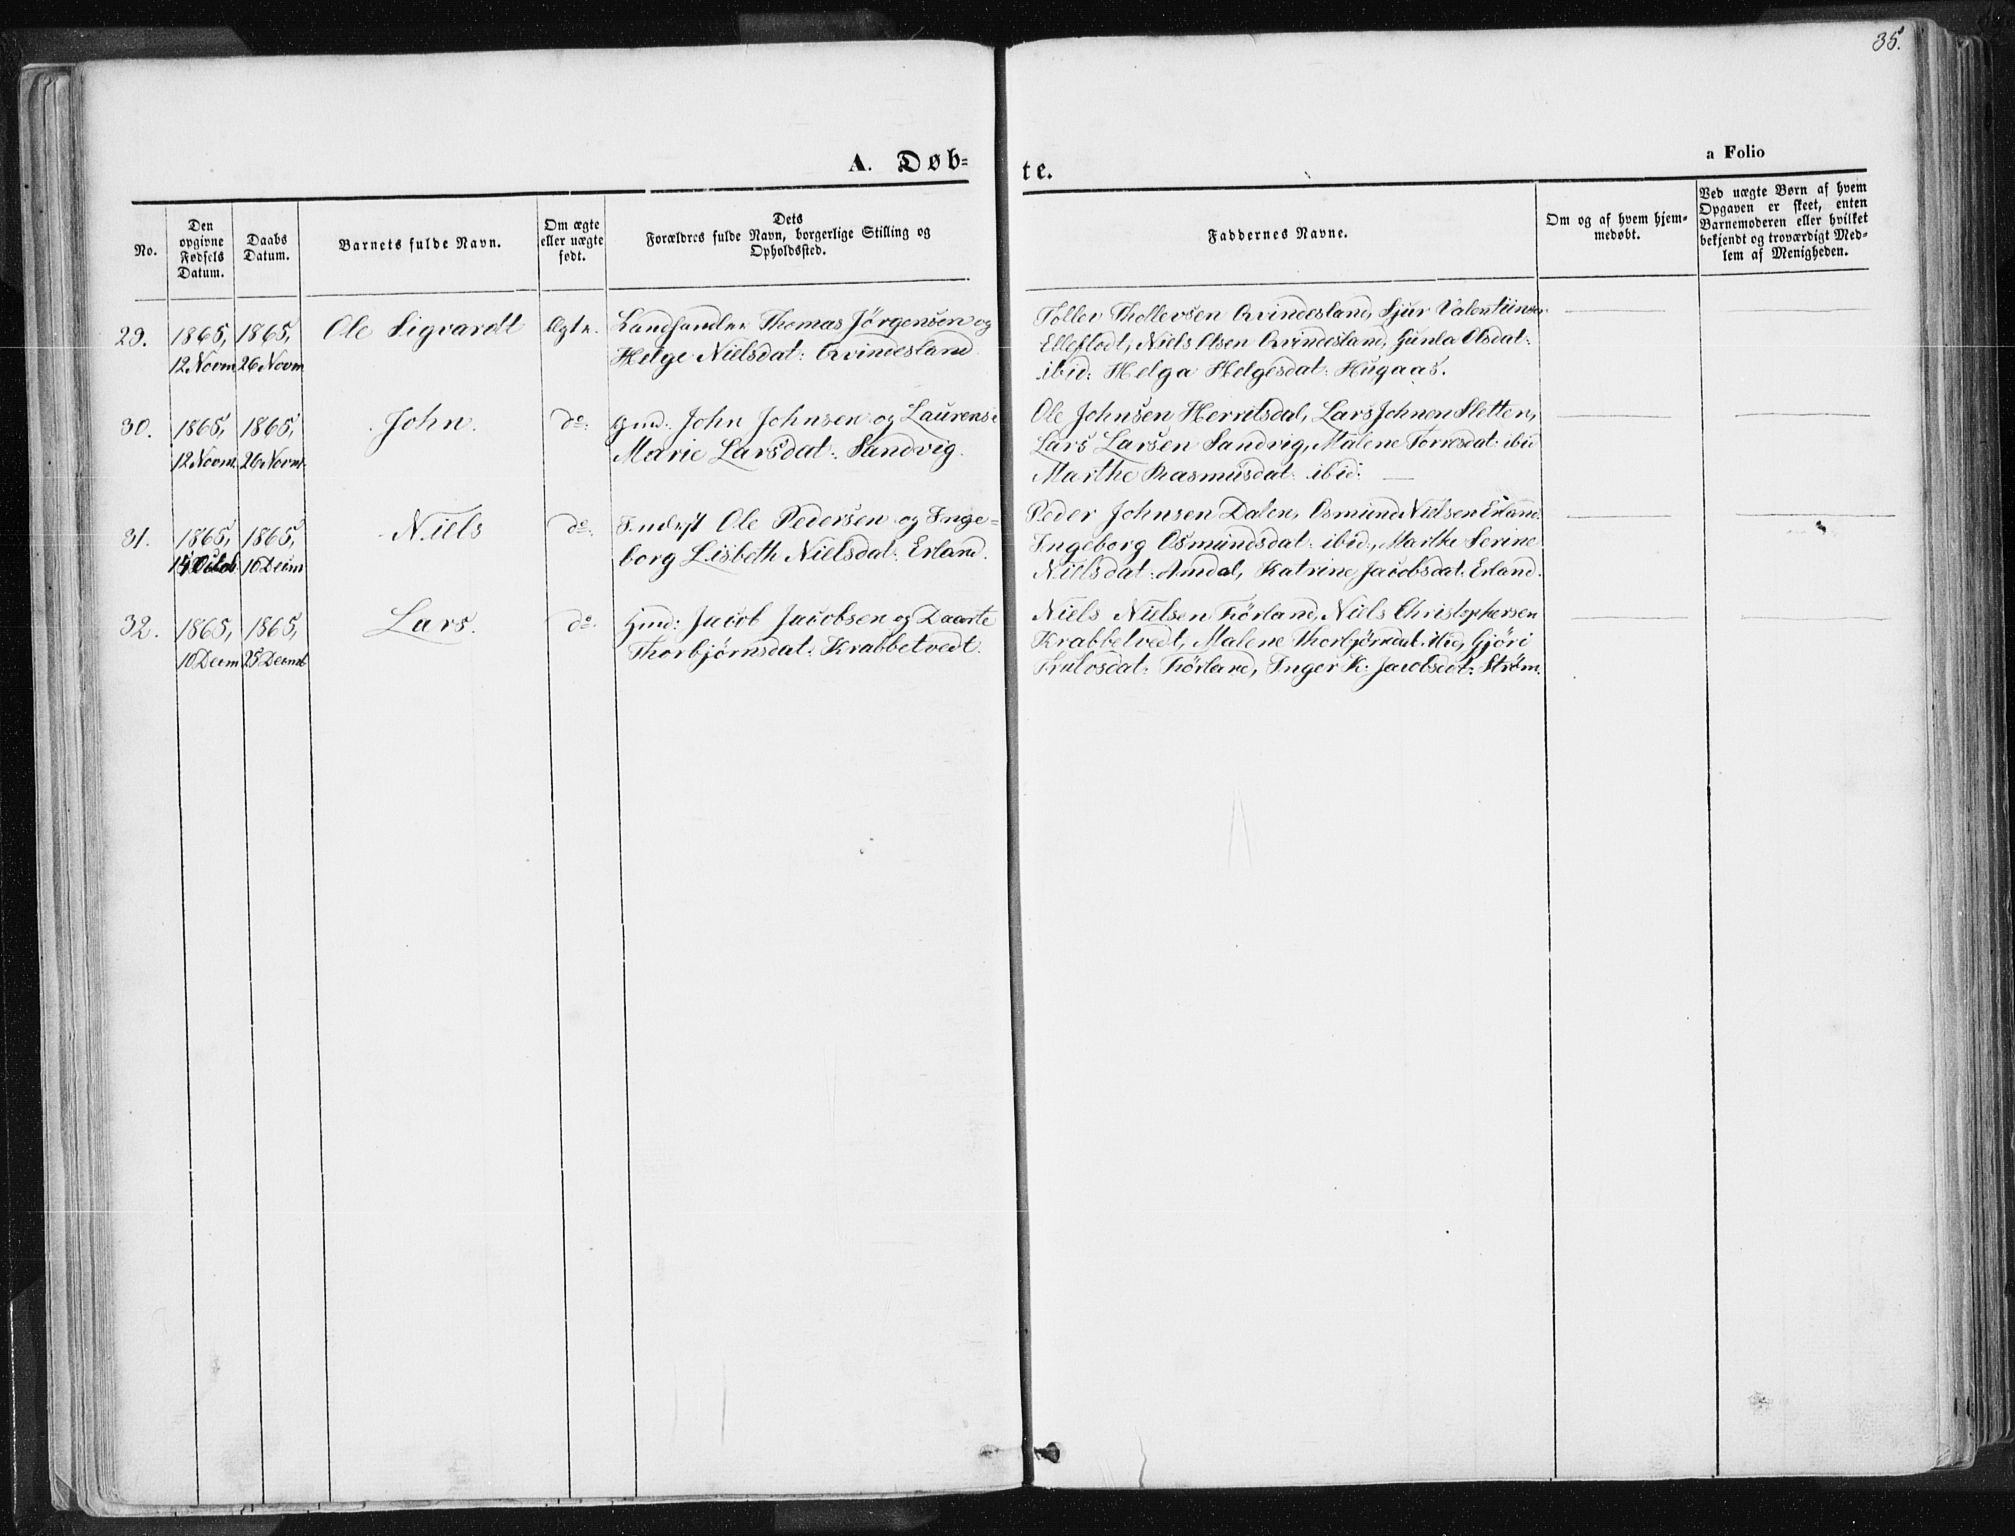 35.
A. Døb-
te.
a Folio
No.
Den
opgivne
Fødsels
Datum.
Daabs
Datum.
Barnets fulde Navn.
Om ægte
eller uægte
født.
Dets
Forældres fulde Navn, borgerlige Stilling og
Opholdssted.
Faddernes Navne.
Om og af hvem hjem-
medøbt.
Ved uægte Børn af hvem
Opgaven er skeet, enten
Barnemoderen eller hvilket
bekjendt og troværdigt Med-
lem af Menigheden.
29.
1865,
12 Novm
1865,
26 Novm
Ole Sigvardt
Ægte.
Landhandler Thomas Jørgensen og
Helge Nielsdat: Qvindesland
Tollev Thollevsen Qvindesland, Sjur Valentinsen
Elleflodt, Niels Olsen Qvindesland, Gunla Olsdat:
ibid: Helga Helgesdat: Hugaas.
30.
1865,
12 Novm.
1865,
26 Novm.
John.
do:
Gmd: John Johnsen og Laurense
Marie Larsdat: Sandvig.
Ole Johnsen Herrilsdal, Lars Johnen Sletten,
Lars Larsen Sandvig, Malene Torresdat: ibid
Marthe Rasmusdat: ibid:
31.
1865,
1865,
10 Decm
Niels
do:
Inderst Ole Pedersen og Inge-
borg Lisbeth Nielsdat: Erland.
Peder Johnsen Dalen, Osmund Nielsen Erland.
Ingeborg Osmundsdat: ibid:, Marthe Serine
Nielsdat: Amdal, Katrine Jacobsdat: Erland.
32.
1865,
10 Decm
1865,
25 Decmb
Lars.
do:
Gmd: Jacob Jacobsen og Daarte
Thorbjørnsdat: Krabbetvedt.
Niels Nielsen Tiørland, Niels Christophersen
Krabbetvedt, Malene Thorbjørnsdat. ibid, Gjøri
Tiørland, Inger K: Jacobsdat: Strøm.